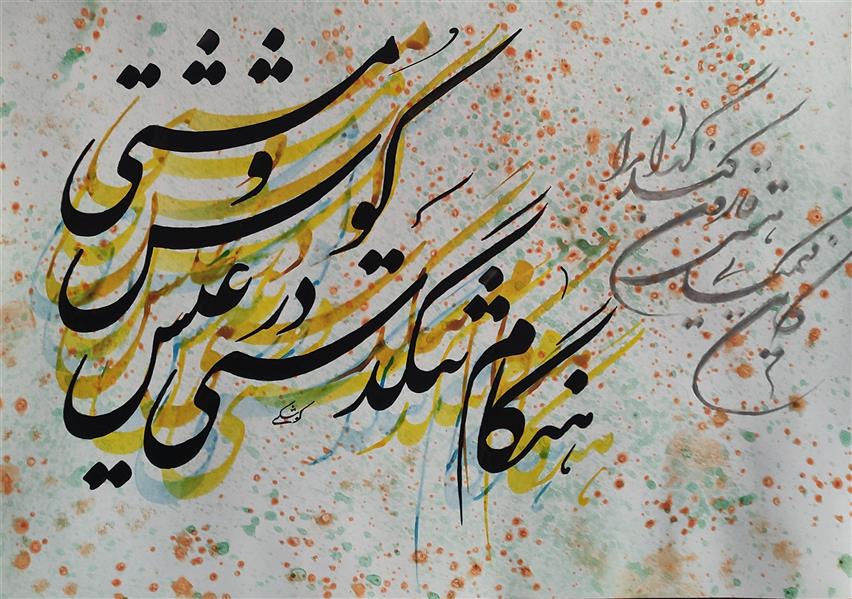 هنگام تنگدستی در عیش کوش و مستی
کاین کیمیای هستی قارون کند گدا را
کوشکی